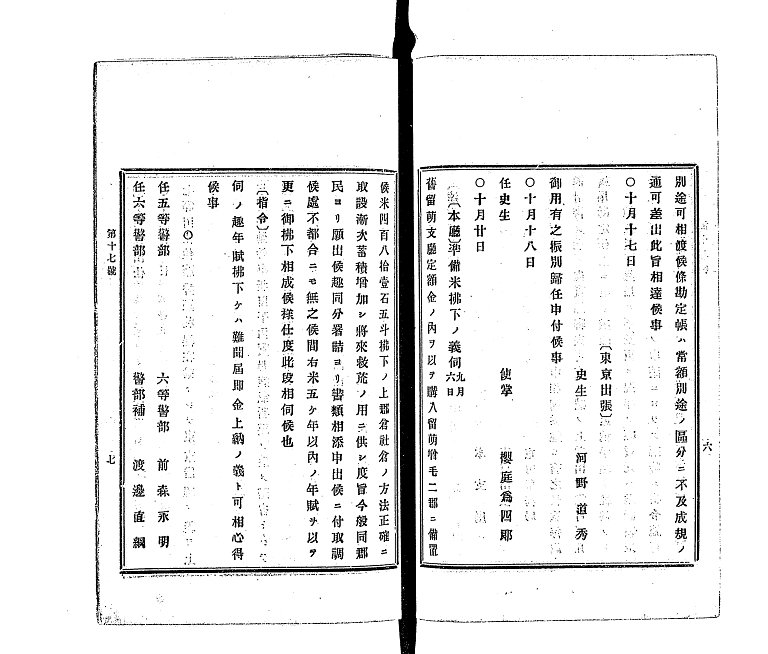 別途可相渡候條勘定帳ハ常額別途ノ區分ニ不及成規ノ
通可差出此旨相達候事
〇十月十七日
〔東京出張〕史生 河野道秀
御用有之振別歸任申付候事
〇十月十八日
任史生 使掌 櫻庭爲四郎
〇十月廿日
〔本廳〕準備米拂下ノ義伺 九月六日
舊留萌支廳定額金ノ內ヲ以テ購入留萌增毛二郡ニ備置
六
候米四百八拾壹石五斗拂下ノ上郡倉社倉ノ方法正確ニ
取設漸次蓄積增加シ將來救荒ノ用ニ供シ度旨今般同郡
民ヨリ願出候趣同分署詰ヨリ書類相添申出候ニ付取調
候處不都合ニモ無之候間右米五ケ年以內ノ年賦ヲ以テ
更ニ御拂下相成候樣仕度此段相伺候也
〔指令〕
伺ノ趣年賦拂下ケハ難聞屆卽金上納ノ義ト可相心得
候事
〇
任五等警部 六等警部 前森永明
任六等警部 警部補 渡邊直綱
第十七號
七